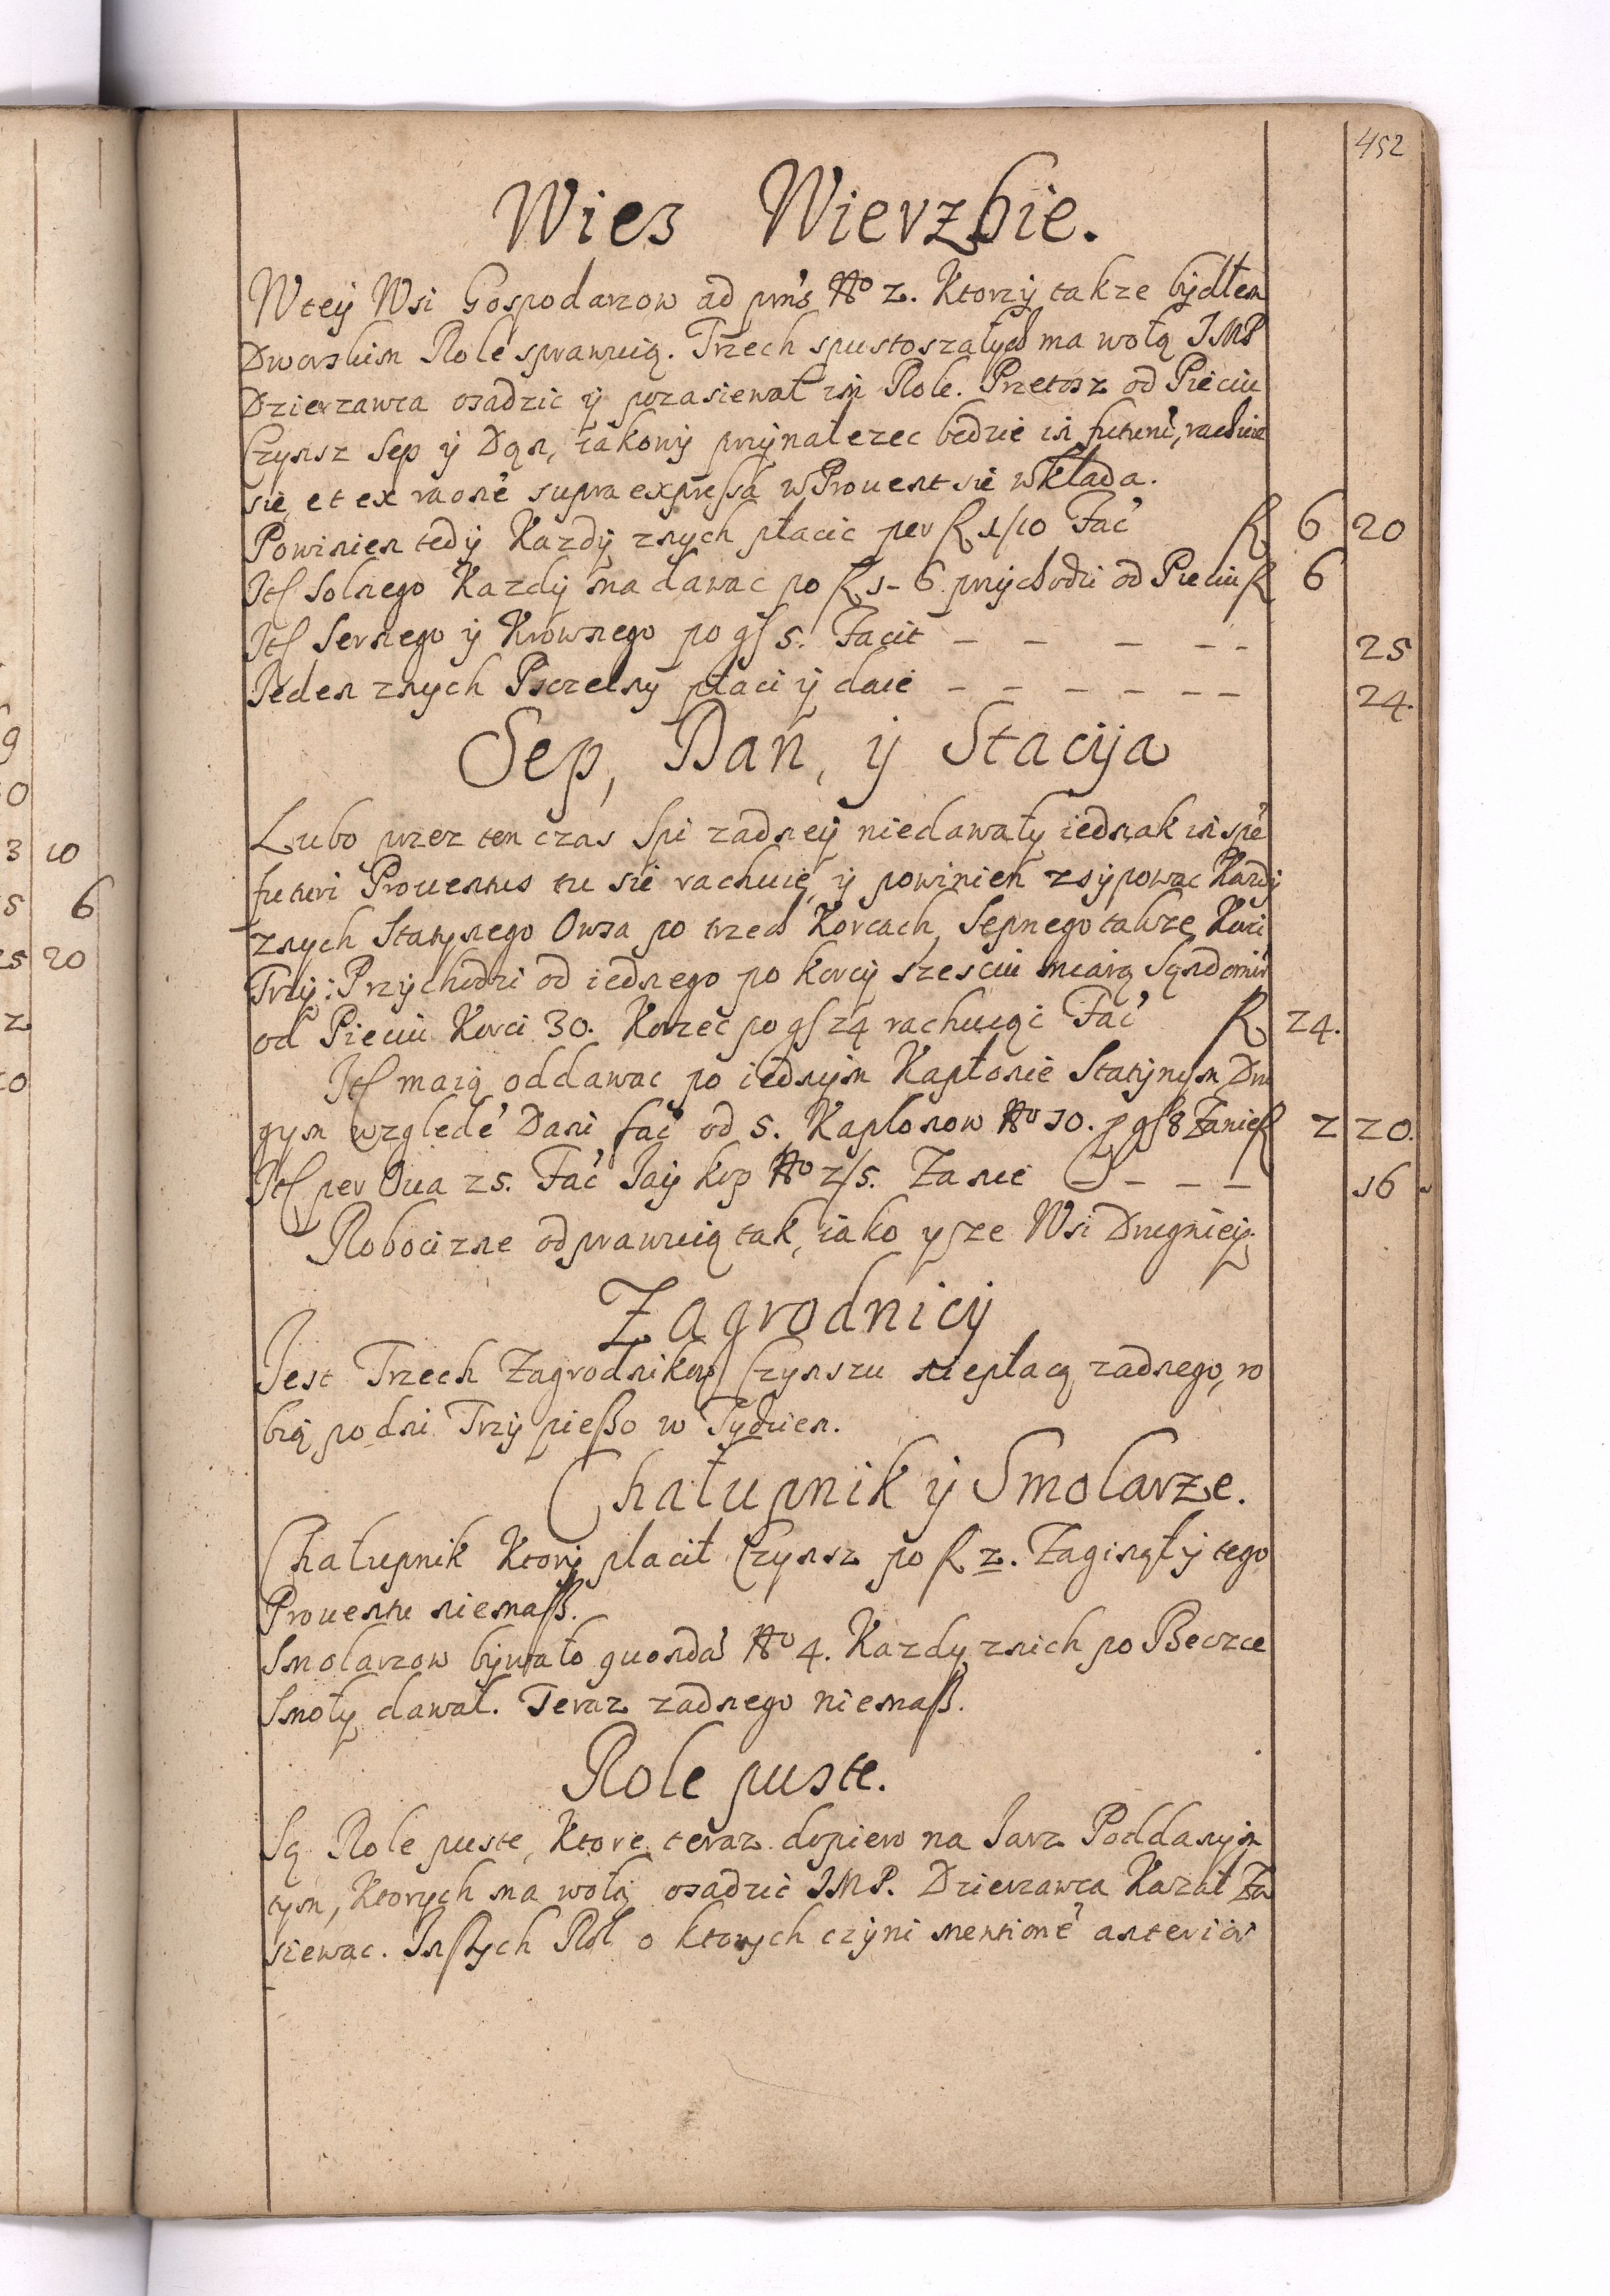 452
Wies Wierzbie.
Wteÿ Wsi Gospodarzow ad prns No 2. Ktorzÿ takze bÿdłem
Dworskim Role sprawuią. Trzech spustoszałych ma wolą JMP
Dzierzawca osadzic ÿ pozasiewał im Role. Przetosz od Pieciu
Czÿnsz Sep ÿ Dan, iakowÿ przÿnalezec bedzie in futurū, rachuie
sie, et ex raone supra expressa w Prouent sie wkłada.
Powinien tedÿ Kazdÿ znych płacic per fl 1/10 Fac fl 6 20
Itt Solnego Kazdÿ ma dawac po fl 1-6 przÿchodzi od Pieciu fl 6
Itt Sernego ÿ Krownego po gſ 5. Facit — — — - - 25
Jeden znych Pszczelnÿ płaci ÿ daie — — — — — — 24.
Sep, Dań, ÿ Stacÿa
Lubo przez ten czas Spi zadneÿ niedawałÿ iednak in spe
futuri Prouentus tu sie rachuie, ÿ powinien zsÿpowac Kazdÿ
znych Statÿnego Owsa po trzech Korcach, Sepnego takze Korci
Trzÿ: Przÿchodzi od iednego po korcÿ szesciu miarą Sądomir
od Pieciu Korci 30. Korzec po gſ 24 rachuiąc Fac fl 24.
Itt maią oddawac po iednÿm Kapłonie Statÿnÿm Dru
gym wzglede Dani fac od 5. Kaplonow No 10. p gſ 8 Zanie fl 2 20.
Itt per Oua 25. Fac Jaÿ kop No 2/5. Za nie — — — — 16
Robocizne odprawuią tak, iako ysze Wsi Drugnieÿ.
Zagrodnicÿ
Jest Trzech Zagrodnikow Czÿnszu nieplacą zadnego, ro
bią po dni Trzÿ pießo w Tÿdzien.
Chałupnik ÿ Smolarze.
Chałupnik Ktorÿ płacił Czÿnsz po fl 2. Zaginął ÿ tego
Prouentu niemaß.
Smolarzow bÿwało quonda No 4. Kazdÿ znich po Beczce
Smołÿ dawał. Teraz zadnego niemaß.
Role puste.
Są Role puste, Ktore teraz dopiero na Jarz Poddanÿm
tym, Ktorych ma wolą osadzic JMP. Dzierzawca Kazał Za
siewac. Inszych Rol o ktorych czÿni mentione anterior